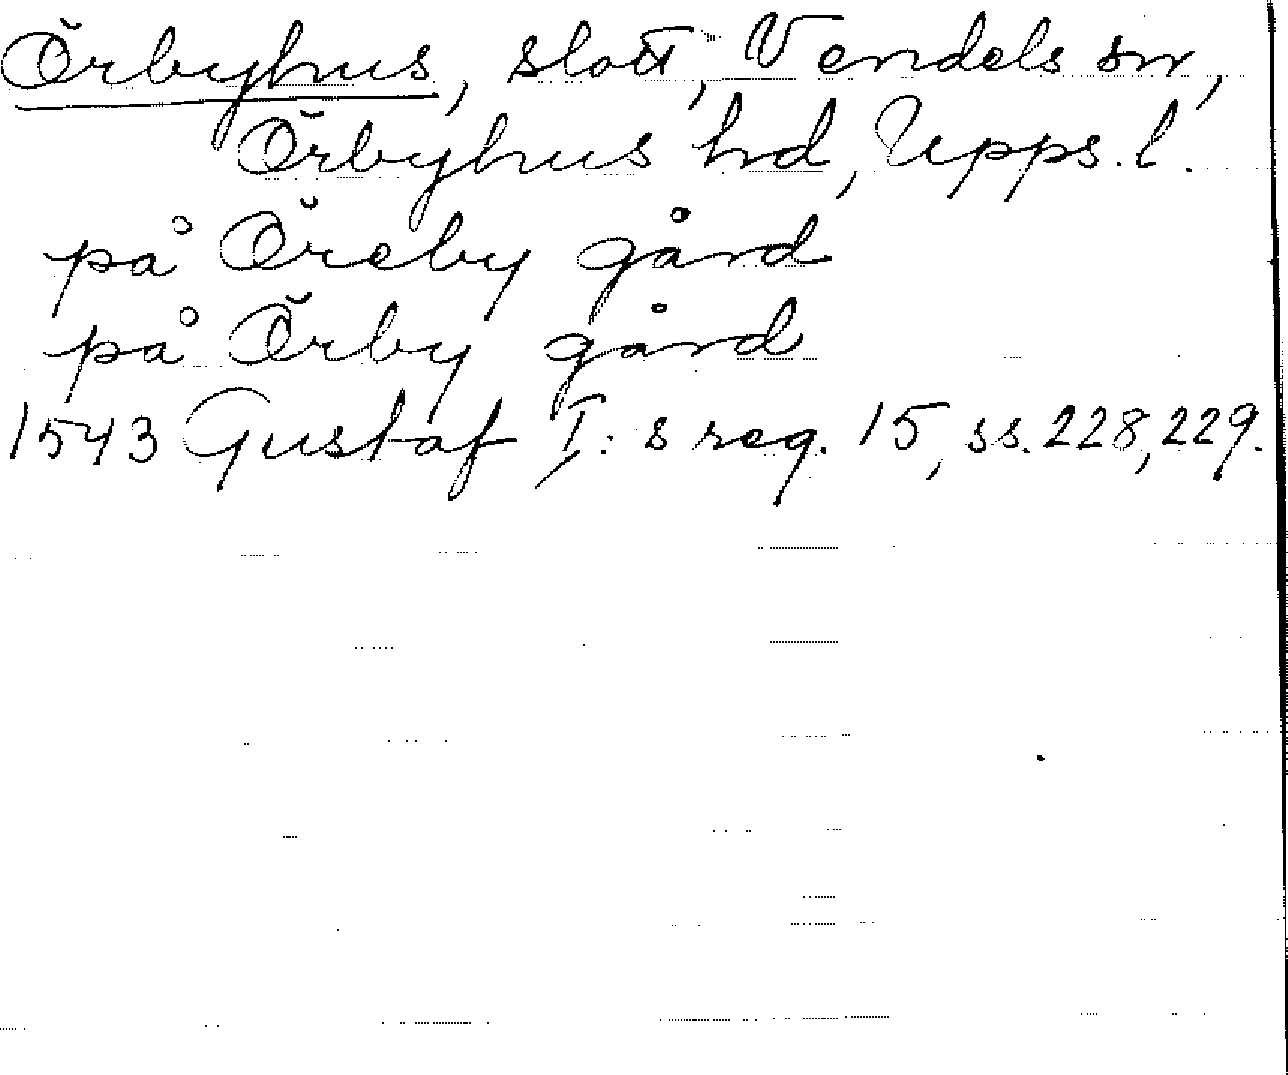 Örbyhus, slott, Vendels sn,
Örbyhus hd, Upps. l.
på Öreby gård
på Örby gård
1543 Gustaf I:s reg. 15, ss. 228, 229.